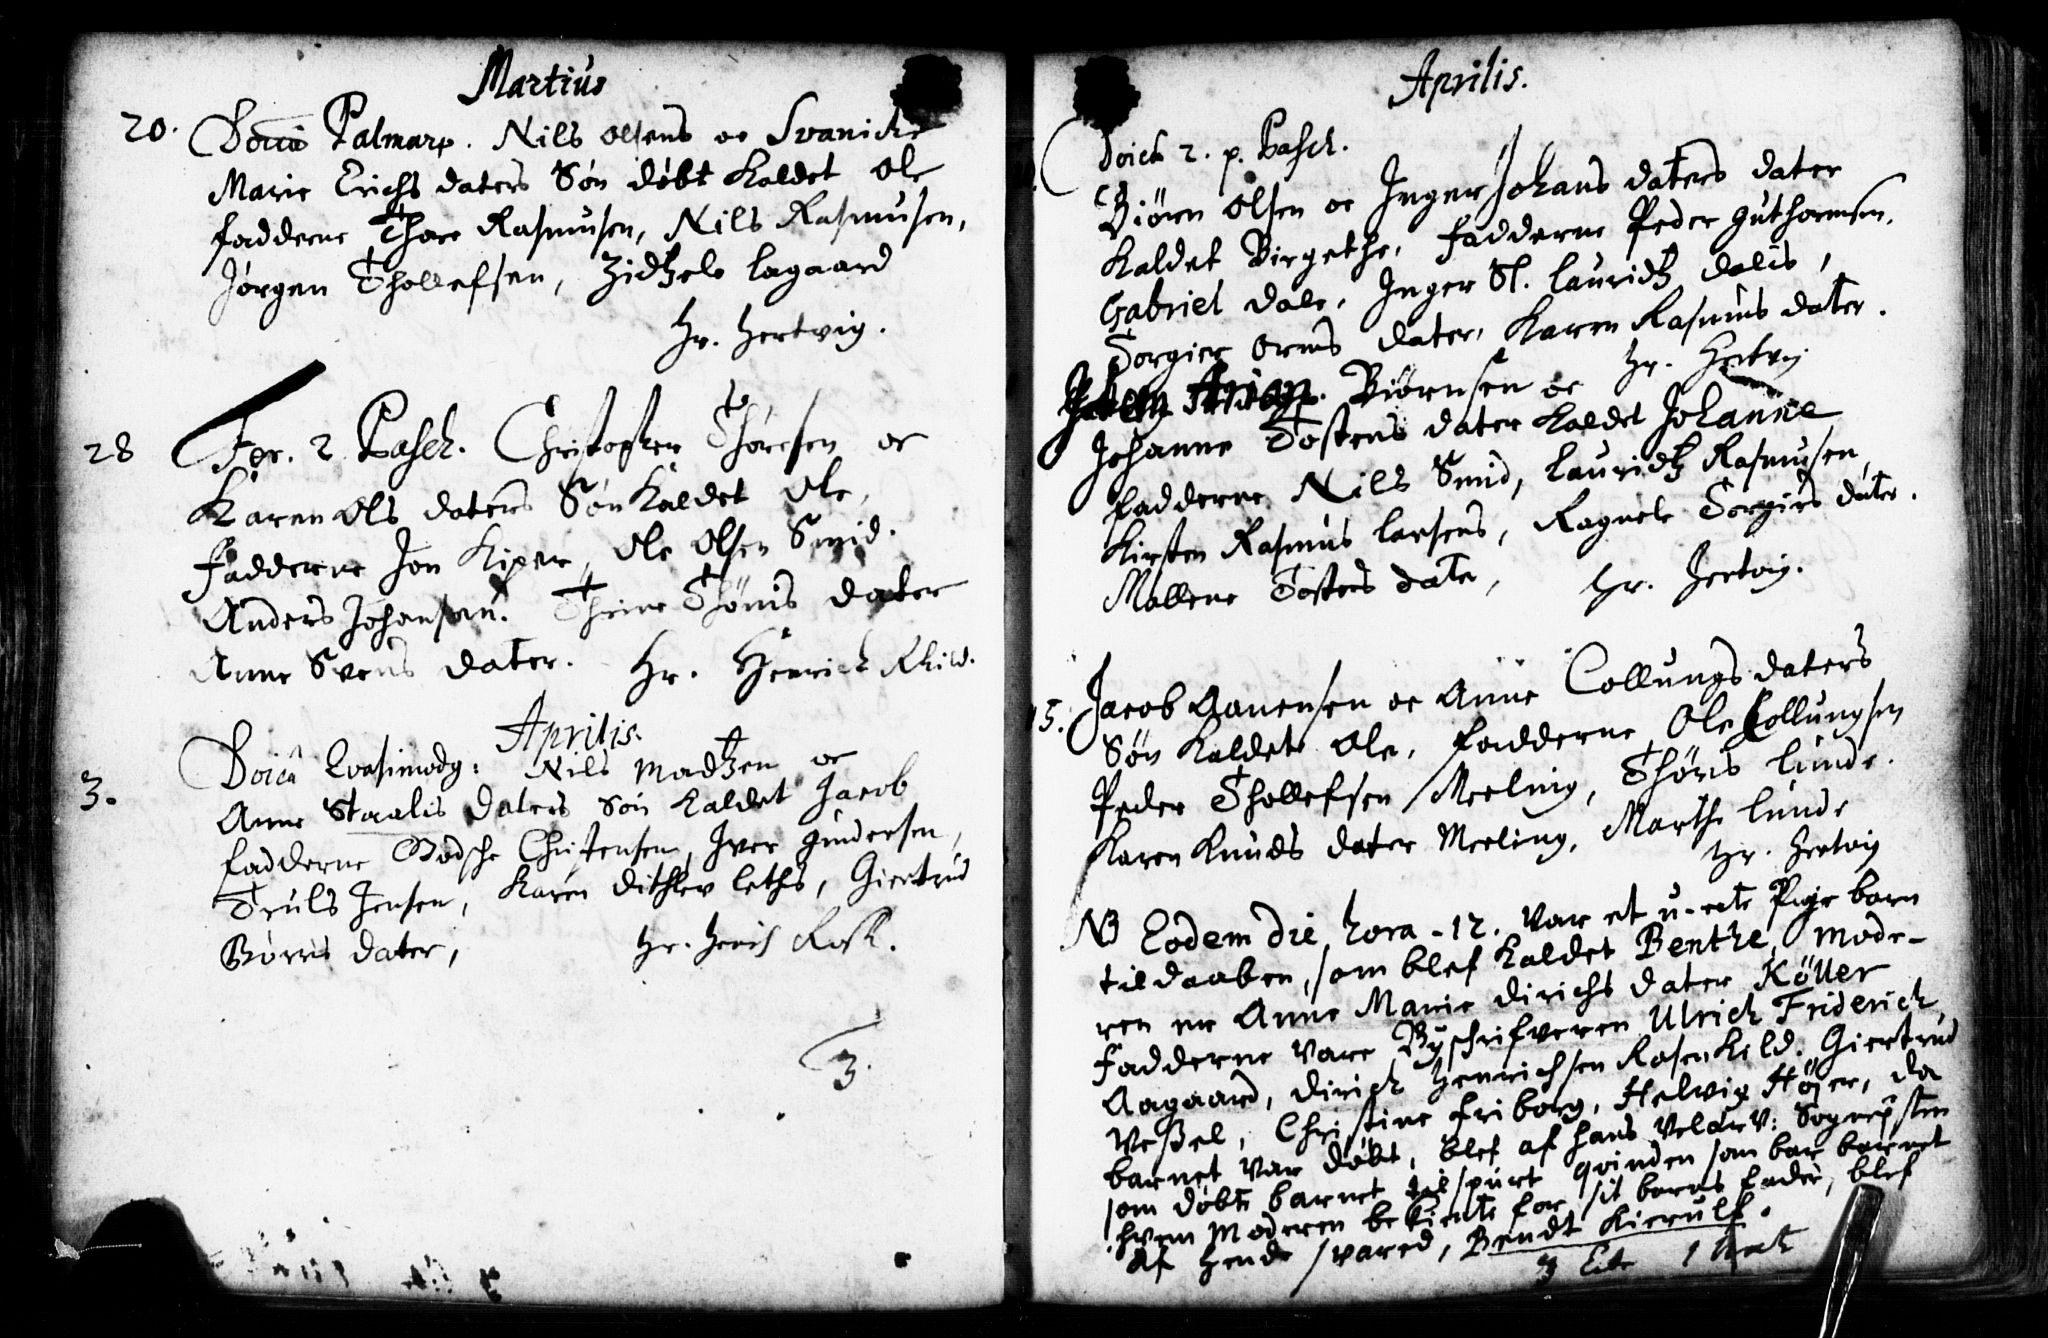 Martius
20. Doicâ Palmar. Nils Olsens oc Svanicke
Marie Erichs daters Søn døbt kaldet Ole
fadderne Thore Rasmusen, Nils Rasmusen,
Jørgen Thollefsen, Zidtzele Lagaard
Hr. Hertvig.
28 Fer. 2 Pasch. Christopher Thoresen oc
Karen Ols daters Søn Kaldet Ole,
Fadderne Jon Kiper, Ole Olsen Smid.
Anders Johansen. Thrine Thøms dater
Anne Svens dater. Hr. Henrich
Aprilis.
3. Doicâ Qvasimodog: Nils Madtzen oc
Anne Staalis daters Søn kaldet Jacob
fadderne Christensen, Iver Gundersen,
Truls Jensen, Karen Dithlev Leths, Giertrud
Børris dater, Hr.
3.
Aprilis.
Doicâ 2. p. Pasch.
Biørn Olsen oc Inger Johans daters dater
kaldet Birgethe, fadderne Peder Guthormsen,
Gabriel Dale, Inger Sl. Lauridtz Dalis,
Torgier Orms dater, Karen Rasmus dater.
Hr. Hertvig
Biørnsen oc
Johanne Tostens dater kaldet Johanne
fadderne Nils Smid, Lauridtz Rasmusen,
Kirsten Rasmus Larsens, Ragnele Torgirs dater.
Mallene Tostens dater, Hr. Hertvig.
15. Jacob Aanensen oc Anne Collungs daters
Søn kaldet Ole, fadderne Ole Collungsen
Peder Thollefsen Meeling, Thøris Lunde.
Karen Knuds dater Meeling, Marthe Lunde
Hr. Hertvig
NB Eodem die, hora - 12. var et u-ecte Pige barn
til daaben, som blef kaldet Benthe, mode-
ren er Anne Marie Dirichs dater Köller
fadderne vare Byschrifveren Ulrich Friderich
Aagaard, Dirich Henrichsen Rosenkild. Giertrud
Wessel, Christine Friborg, Helvig Höjer, da
barnet var døbt, blef af hans Velærv: Sognepsten
som døbte barnet tilspurt qvinden som bar barnet
hvem Moderen bekiente for sit barns fader, blef
af hende svared, Bendt Kierulf.
3